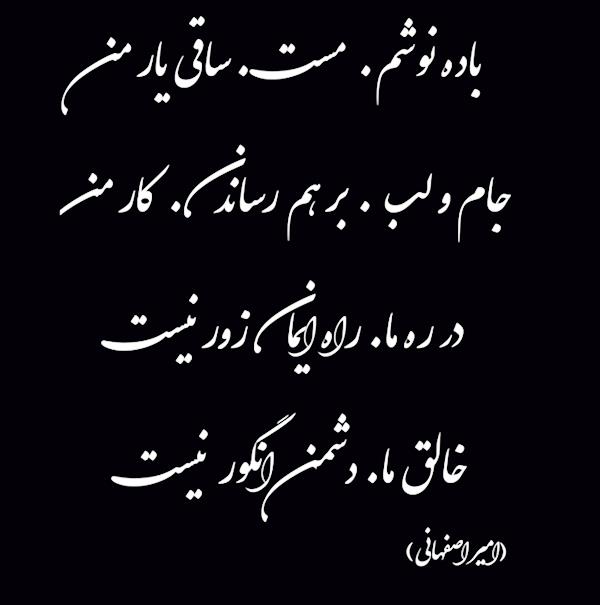 باده نوشم . مست. ساقی یار من
جام و لب . بر هم رساندن. کار من
در ره ما. راه ایمان زور نیست
خالق ما. دشمن انگور نیست
(امیراصفهانی)